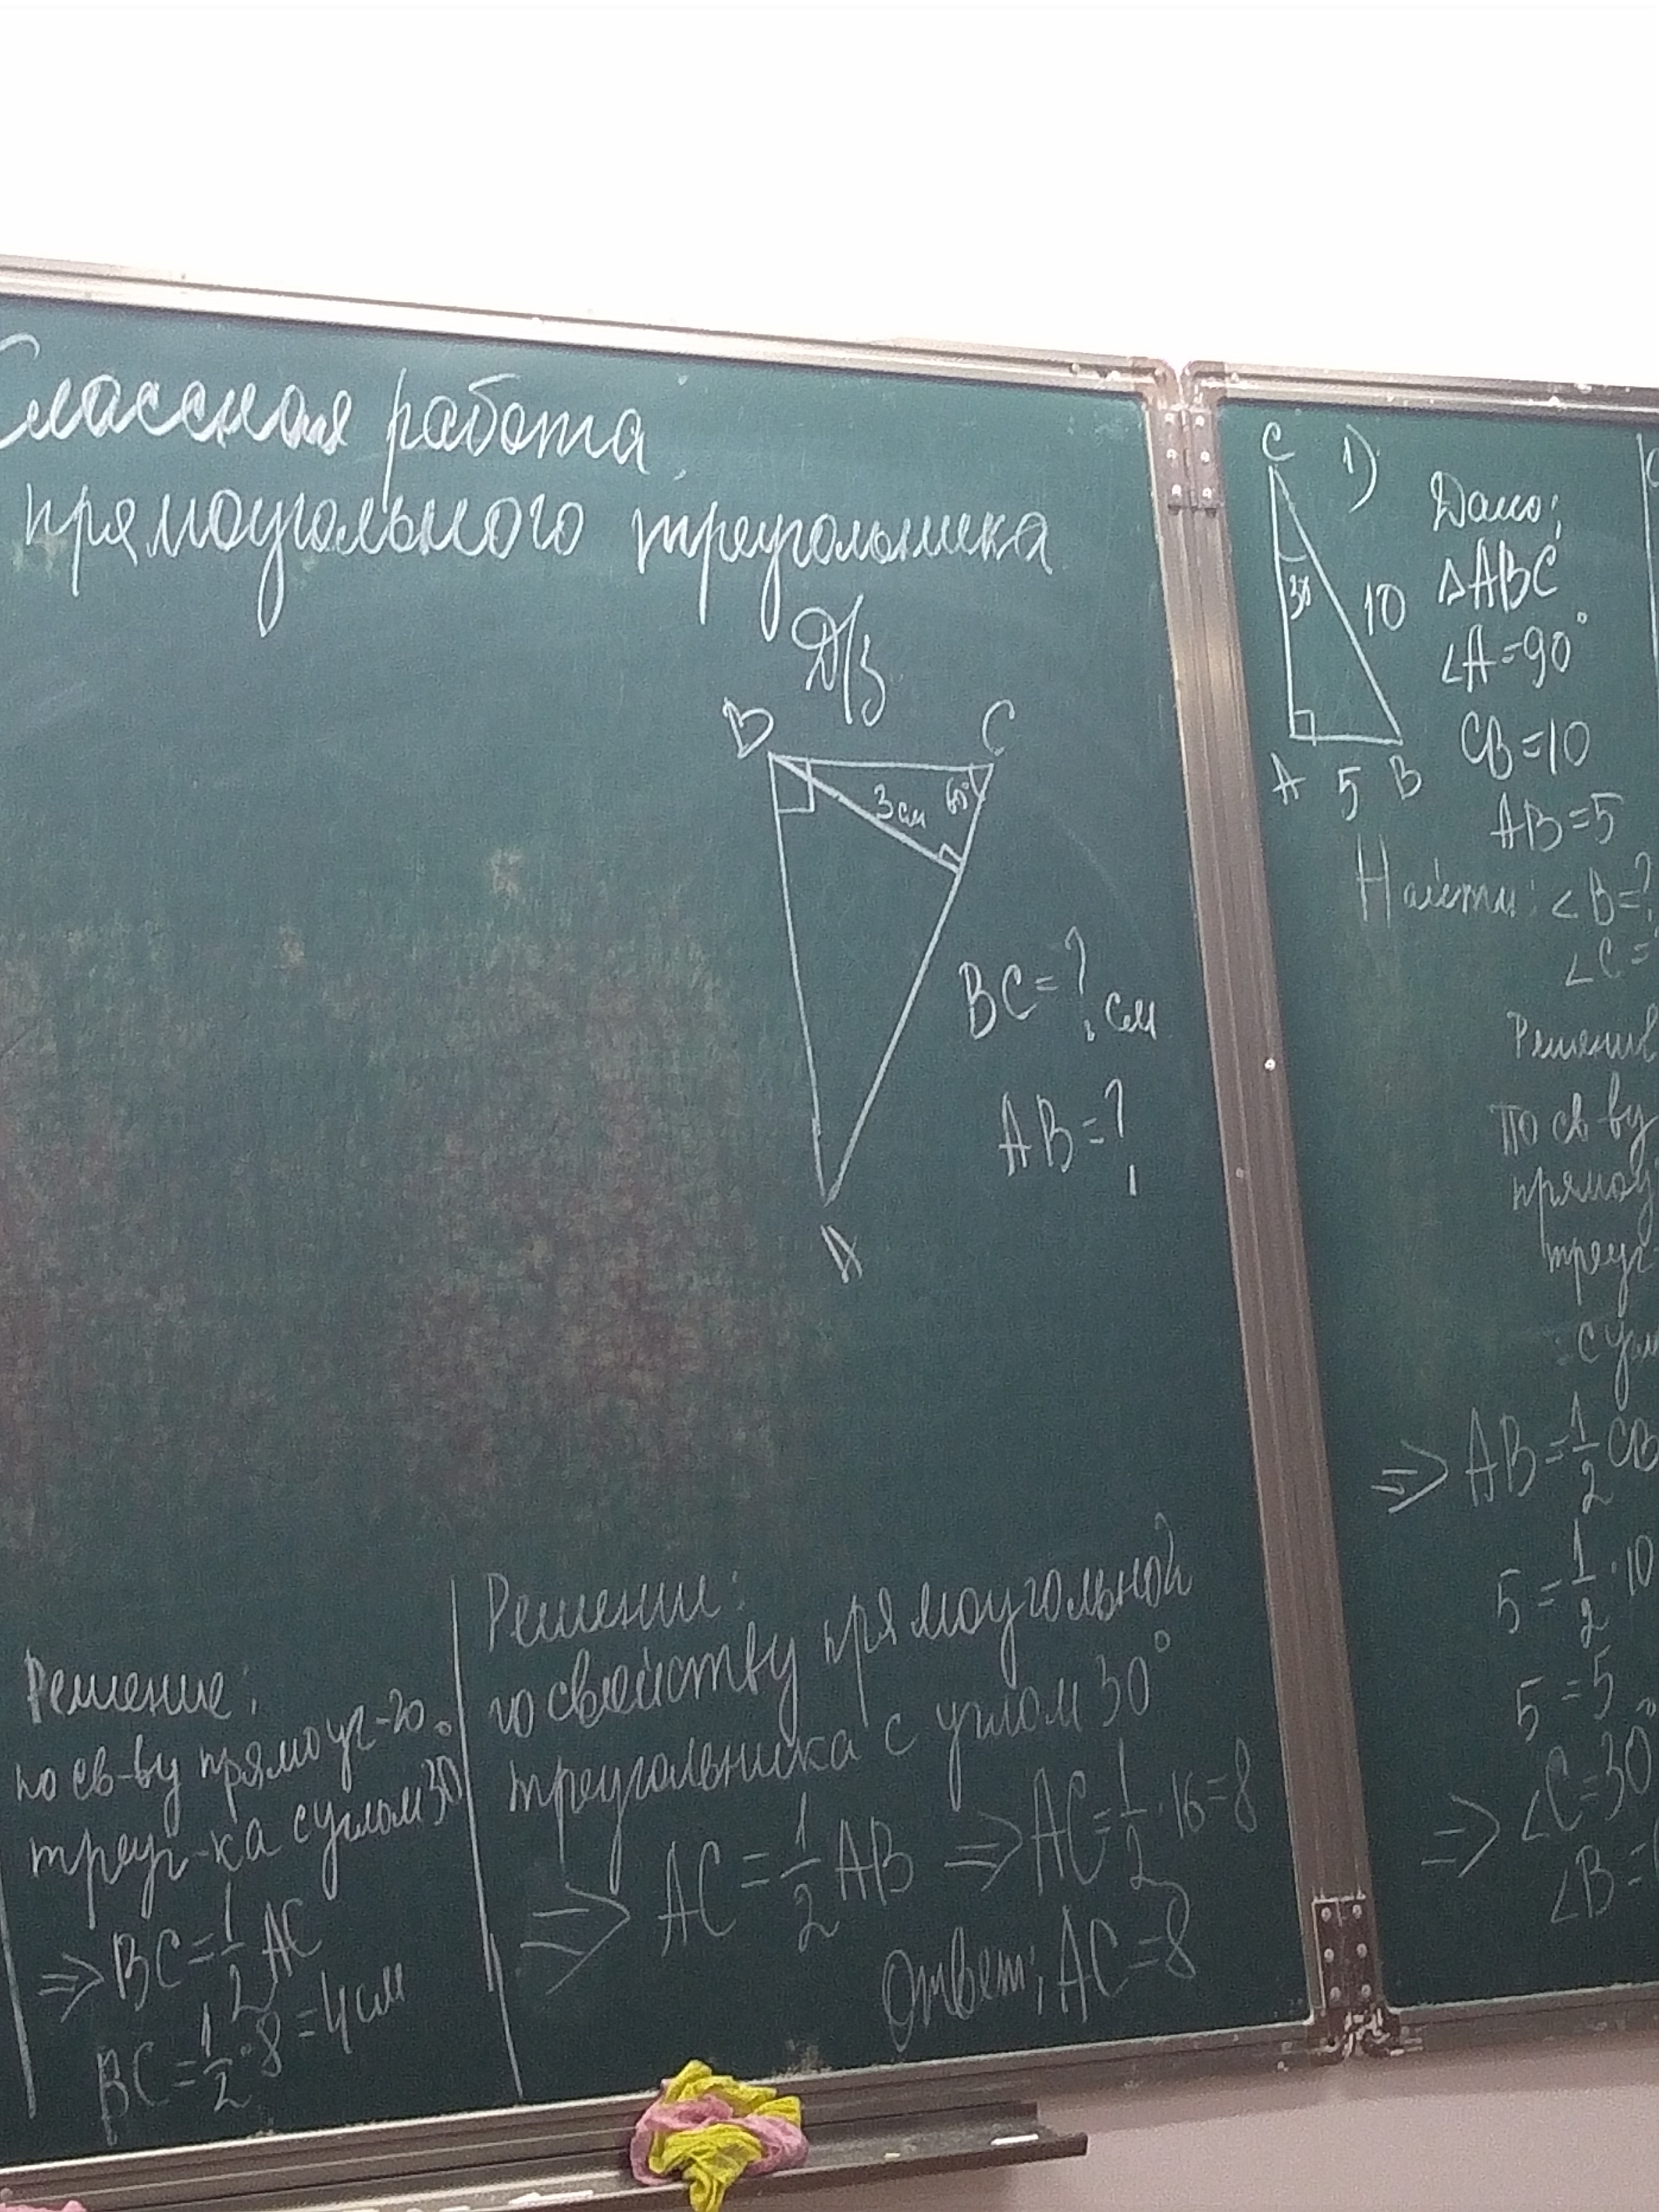 Классная работа
прямоугольного треугольника
Д/з
B C
3 см 60°
BC = ? см
AB = ?
A
Решение:
по св-ву прямоуг-го
треуг-ка с углом 30°
=> BC = 1/2 AC
BC = 1/2 · 8 = 4 см
Решение:
по свойству прямоугольной
треугольника с углом 30°
=> AC = 1/2 AB => AC = 1/2 · 16 = 8
Ответ: AC = 8
C 1)
30 10
A 5 B
Дано:
△ABC
∠A = 90°
CB = 10
AB = 5
Найти: ∠B = ?
∠C =
Решение
По св-ву
прямоу
треуг-
с угл
=> AB = 1/2 CB
5 = 1/2 · 10
5 = 5
=> ∠C = 30°
∠B =